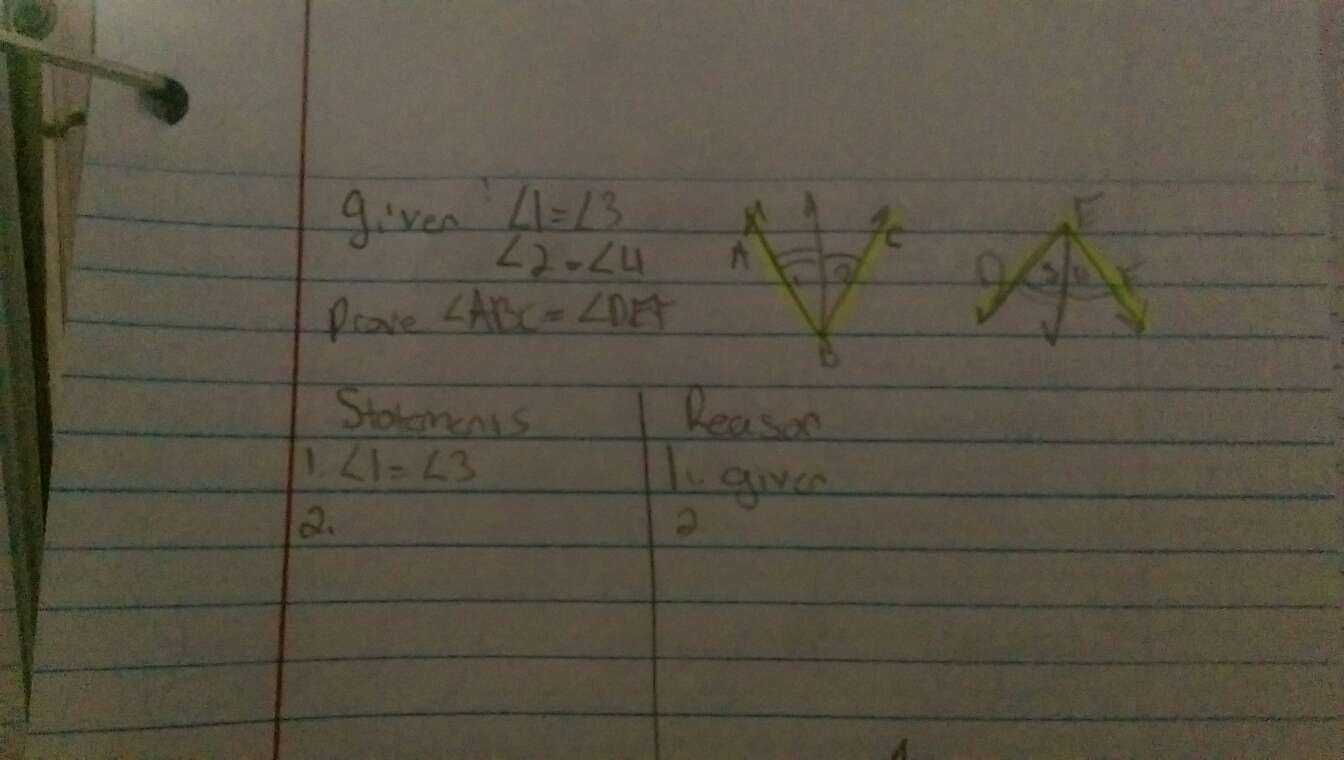 given ∠1=∠3
∠2=∠4
Prove ∠ABC=∠DEF
A
C
B
1
2
E
D
3
4
F
Statements
Reason
1. ∠1=∠3
1. given
2.
2